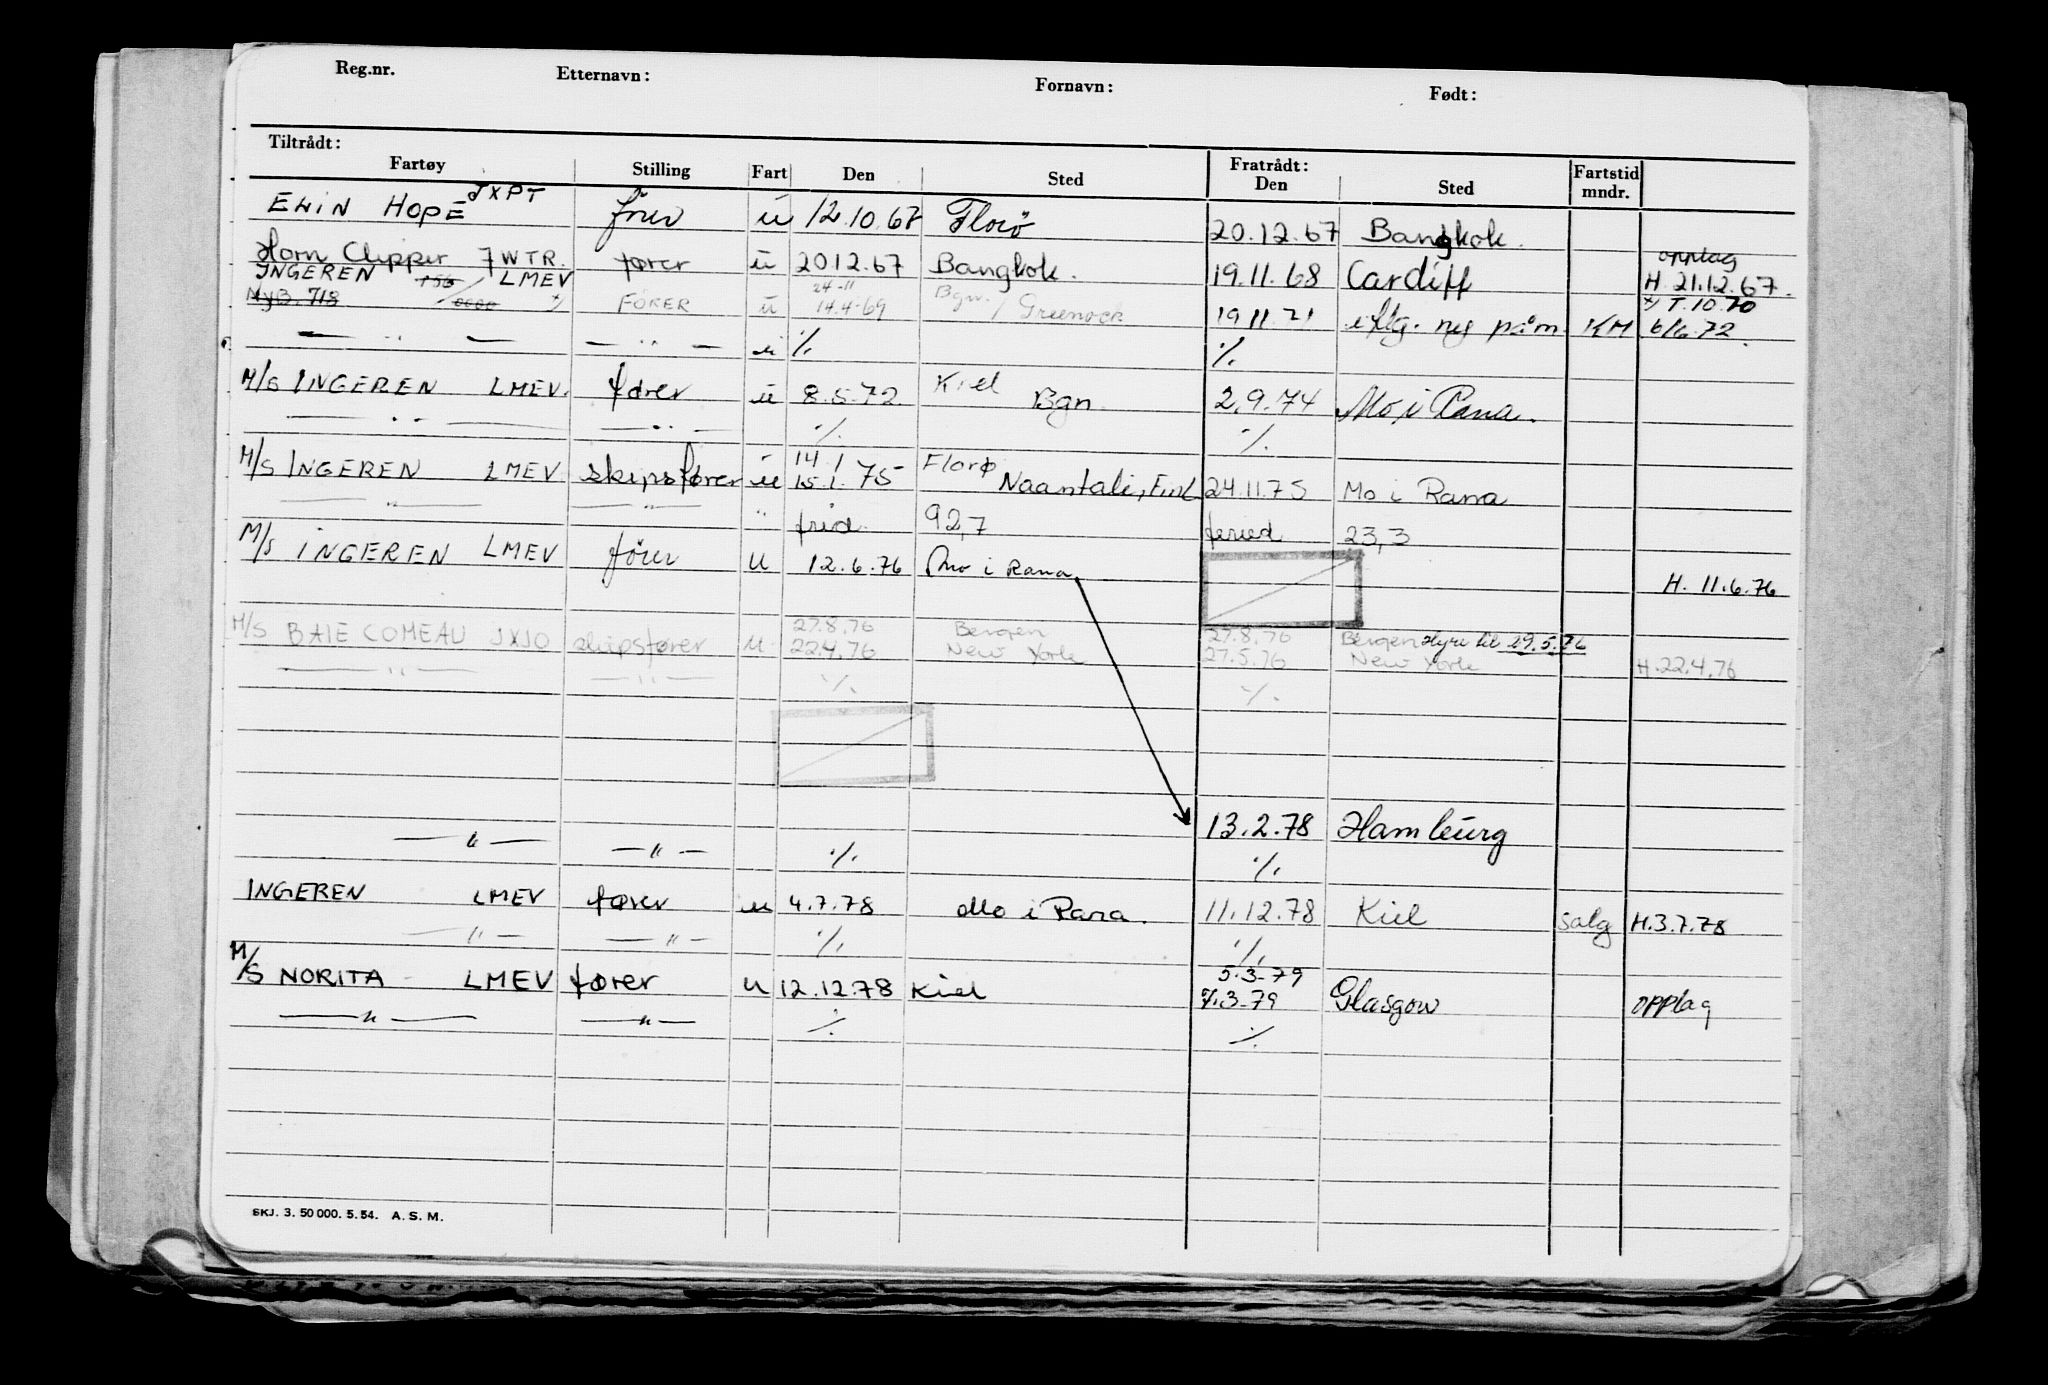 Reg.nr. Etternavn: Fornavn: Født:
Tiltrådt: Fratrådt:
Fartøy Stilling Fart Den Sted Den Sted Fartstid mndr.
ELIN HOPE JXPT förer ü 12.10.67 Florö 20.12.67 Bangkok.
opplag
Horn Clipper JWTR. fører ü 2012.67 Bangkok. 19.11.68 Cardiff H. 21.12.67.
INGEREN LMEV 24-11 Bgn. x/ T.10.70
NyB. 718 x/ FÖRER ü 14.4-69 / Greenock 19 11 71 påm. KM 6/6.72.
— " — — " — ü ./.  ./.
M/S INGEREN LMEV. fører ü 8.5-72 Kiel Bgn. 2.9.74 Mo i Rana.
— " — — " — ./. ./.
14.1 Florø
M/S INGEREN LMEV skipsfører ü 15.1.75 Naantali, Finl 24.11.75 Mo i Rana
— " — — " — " frid. 92,7 feried 23,3
M/S INGEREN LMEV förer U 12.6.76 Mo i Rana H. 11.6.76
27.8.76 Bergen 27.8.76 Bergen Hyre til 29.5.76
M/S BAIE COMEAU JXJO skipsfører U 22.4.76 New York 27.5.76 New York H.22.4.76
— " — — " — ./. ./.
13.2.78 Hamburg
— " — — " — ./. ./.
INGEREN LMEV fører u 4.7.78 Mo i Rana. 11.12.78 Kiel salg H.3.7.78
— " — — " — ./. ./.
5.3-79
M/S NORITA - LMEV fører U 12.12.78 Kiel 3-79 Glasgow opplag
— " — — " — ./. ./.
SKJ. 3. 50 000. 5. 54. A. S. M.